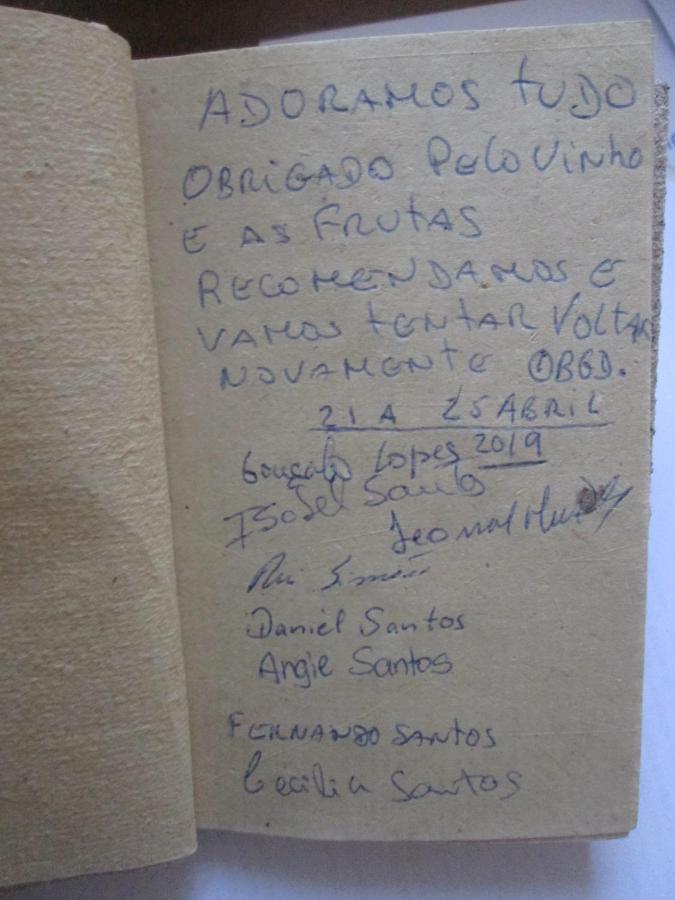 ADORAMOS tUDO
OBRIGADO PELO Vinho
E AS FRUTAS
RECOMENDAMOS E
VAMOS tENTAR VOLTAR
NOVAMENTE OBGD.
21 A 25 ABRIL
2019
Gonçalo Lopes
Isabel Santos
Rui Simões
Daniel Santos
Angie Santos
FERNANDO SANTOS
Cecilia Santos